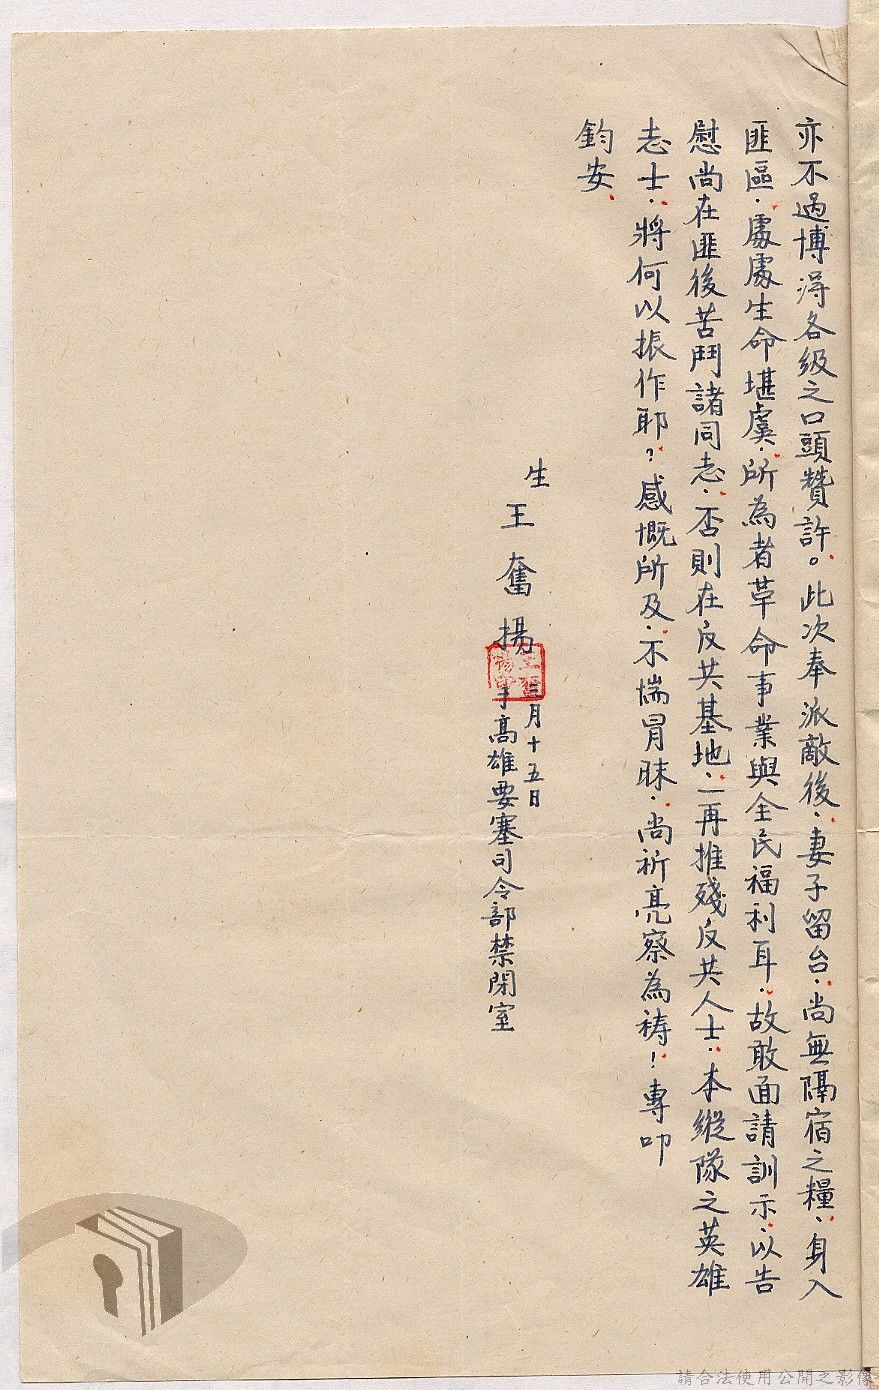 亦不過博得各級之口頭贊許。此次奉派敵後、妻子留台、尚無隔宿之糧、身入
匪區、處處生命堪虞、所為者革命事業與全民福利耳、故敢面請訓示、以告
慰尚在匪後苦鬥諸同志、否則在反共基地、一再推殘反共人士、本縱隊之英雄
志士、將何以振作耶?感慨所及、不惴冒昧、尚祈亮察為祷!專叩
鈞安、
生
王奮揚
三月十五日
于高雄要塞司令部禁閉室
請合法使用公開之影像